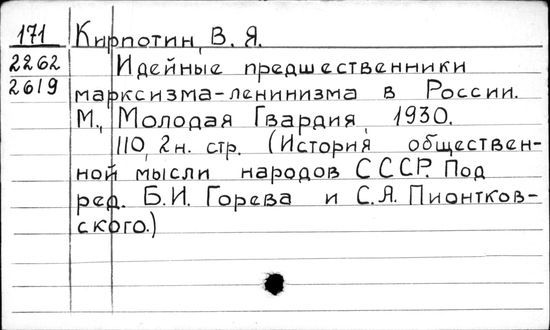 171 Кирпотин, В. Я.
2262 Идейные предшественники
2619 марксизма-ленинизма в России.
М., Молодая Гвардия, 1930.
110, 2 н. стр. (История обществен-
ной мысли народов СССР. Под
ред. Б.И. Горева и С.Я. Пионтков-
ского.)